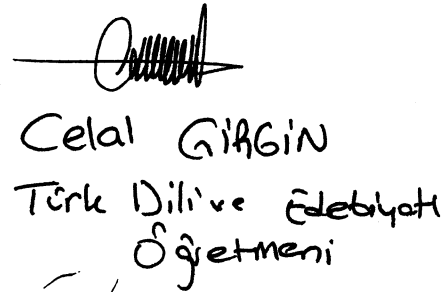 Celal GİRGİN
Türk Dili ve Edebiyatı
Öğretmeni